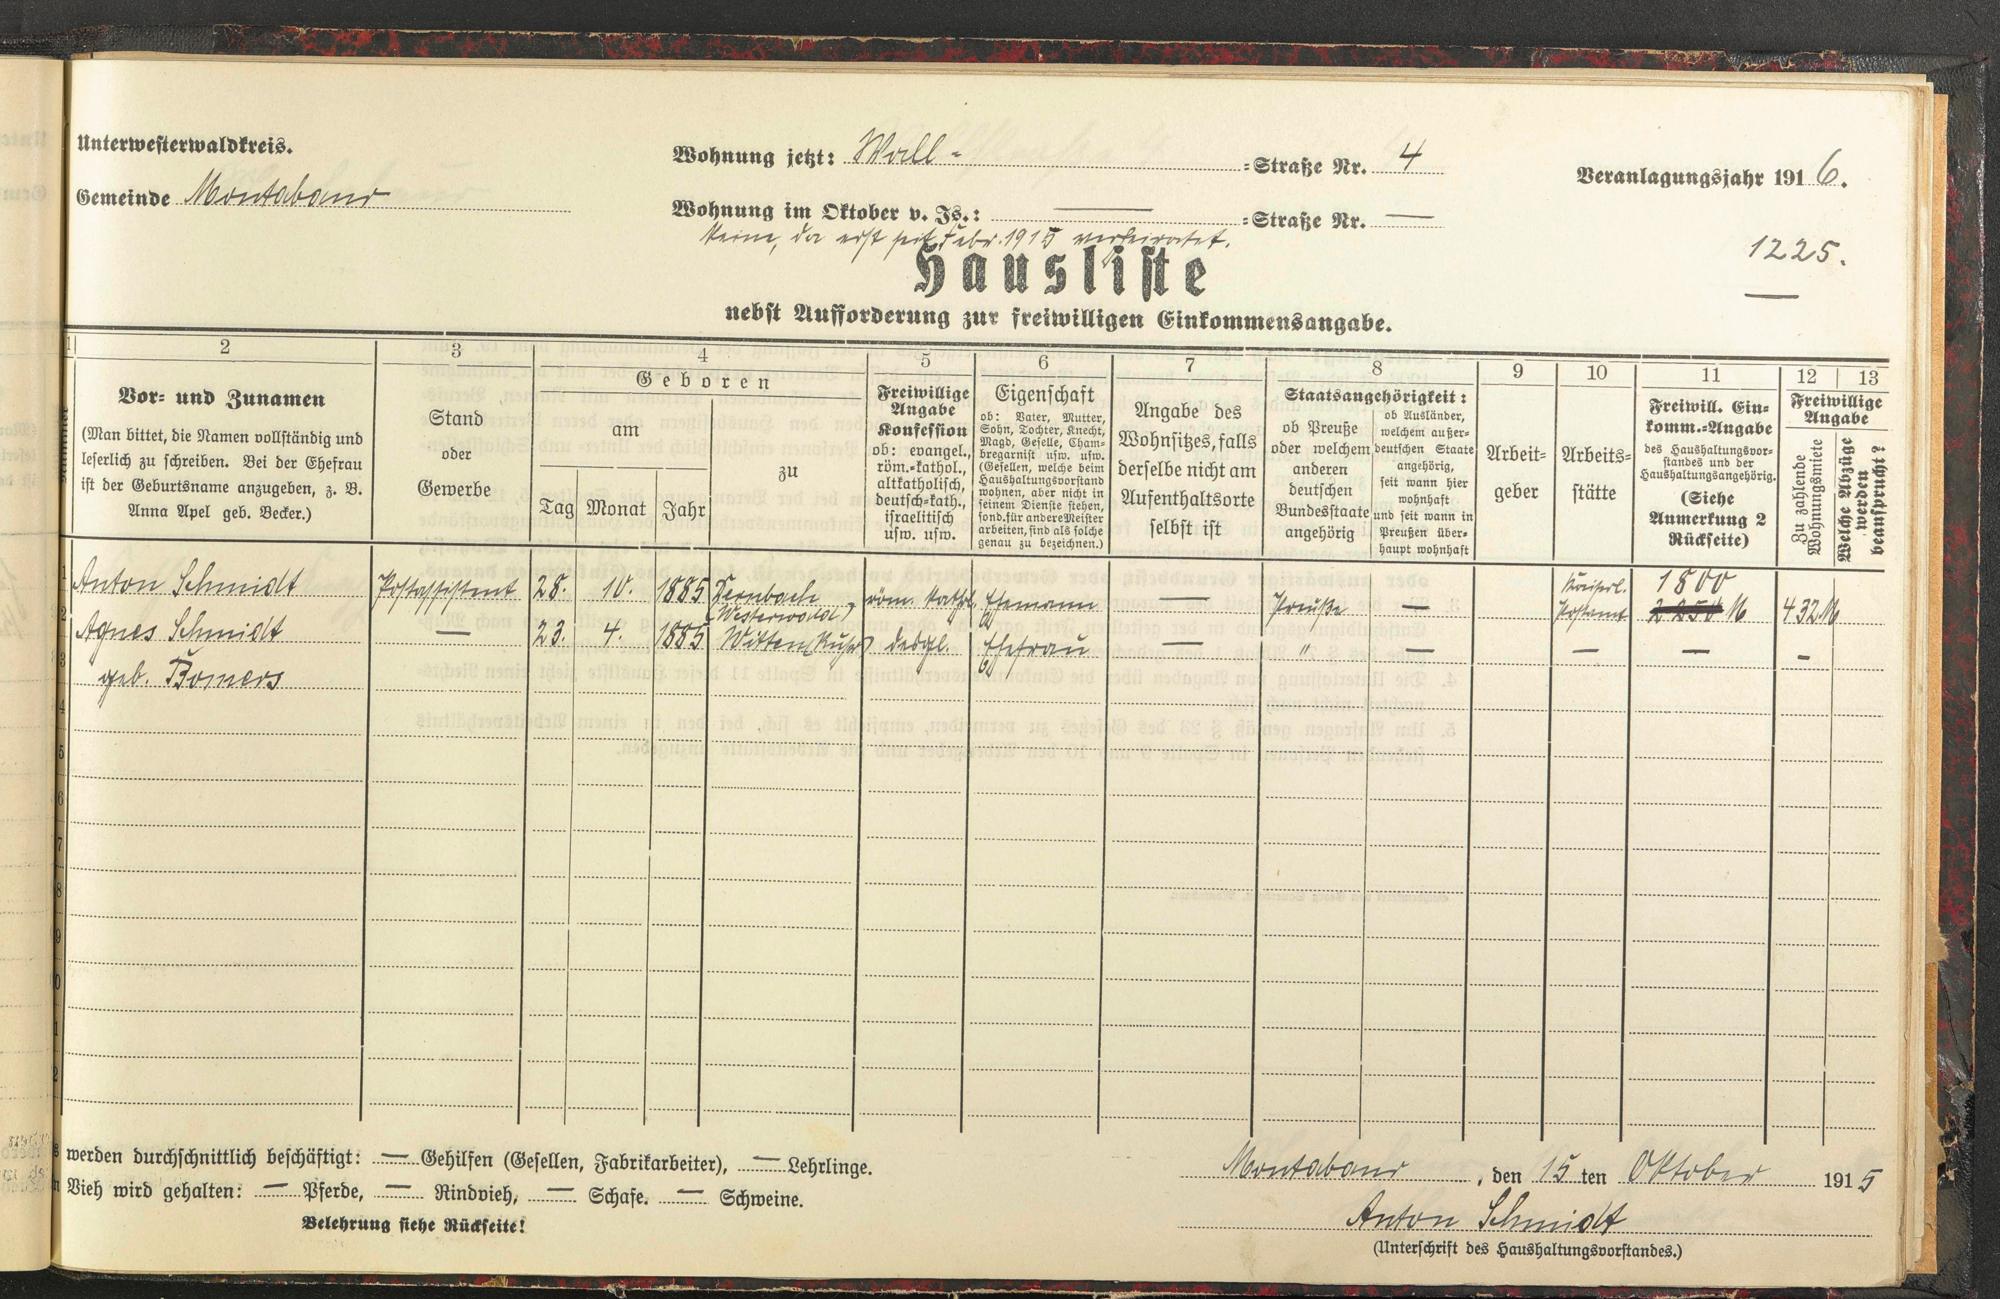 Unterwesterwaldkreis.
Gemeinde Montabaur
Wohnung jetzt: Wall- =Straße Nr. 4
Wohnung im Oktober v. Js.: — =Straße Nr. —
Keine, da erst seit Febr. 1915 verheiratet.
Veranlagungsjahr 1916.
1225.
Hausliste
nebst Aufforderung zur freiwilligen Einkommensangabe.
1 2 3 4 5 6 7 8 9 10 11 12 13
Vor- und Zunamen
(Man bittet, die Namen vollständig und
leserlich zu schreiben. Bei der Ehefrau
ist der Geburtsname anzugeben, z. B.
Anna Apel geb. Becker.)
Stand
oder
Gewerbe
Geboren
am
Tag Monat Jahr
zu
Freiwillige
Angabe
Konfession
ob: evangel.,
röm.-kathol.,
altkatholisch,
deutsch-kath.,
israelitisch
usw. usw.
Eigenschaft
ob: Vater, Mutter,
Sohn, Tochter, Knecht,
Magd, Geselle, Cham-
bregarnist usw. usw.
(Gesellen, welche beim
Haushaltungsvorstand
wohnen, aber nicht in
seinem Dienste stehen,
sond. für andere Meister
arbeiten, sind als solche
genau zu bezeichnen.)
Angabe des
Wohnsitzes, falls
derselbe nicht am
Aufenthaltsorte
selbst ist
Staatsangehörigkeit:
ob Preuße
oder welchem
anderen
deutschen
Bundesstaate
angehörig
ob Ausländer,
welchem außer-
deutschen Staate
angehörig,
seit wann hier
wohnhaft
und seit wann in
Preußen über-
haupt wohnhaft
Arbeit-
geber
Arbeits-
stätte
Freiwill. Ein-
komm.-Angabe
des Haushaltungsvor-
standes und der
Haushaltungsangehörig.
(Siehe
Anmerkung 2
Rückseite)
Freiwillige
Angabe
Zu zahlende
Wohnungsmiete
Welche Abzüge
werden
beansprucht?
1 Anton Schmidt Postassistent 28. 10. 1885 Dernbach (Westerwald) röm. kathol. Ehemann — Preuße — Kaiserl. Postamt 1800 2250 M 432 M
2 Agnes Schmidt — 23. 4. 1885 Witten (Ruhr) desgl. Ehefrau — " — — — —
3 geb. Bomers
4
5
6
7
8
9
0
1
2
werden durchschnittlich beschäftigt: — Gehilfen (Gesellen, Fabrikarbeiter), — Lehrlinge.
Vieh wird gehalten: — Pferde, — Rindvieh, — Schafe. — Schweine.
Belehrung siehe Rückseite!
Montabaur, den 15 ten Oktober 1915
Anton Schmidt
(Unterschrift des Haushaltungsvorstandes.)